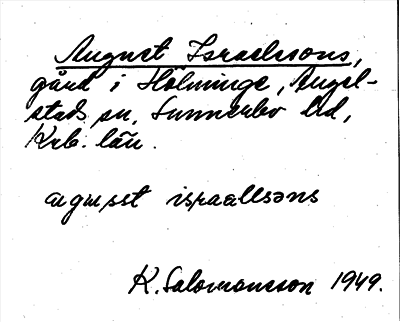 August Israelssons,
gård i Hölminge, Angel-
stads sn, Sunnerbo hd,
Krb. län.
agusst israallsəns
K. Salomonsson 1949.